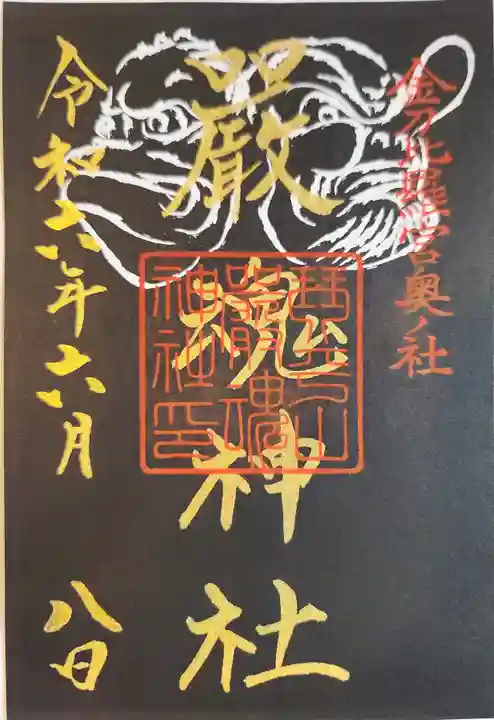 金刀比羅宮奥ノ社
嚴魂神社
琴平山
嚴魂
神社印
令和六年六月
八日